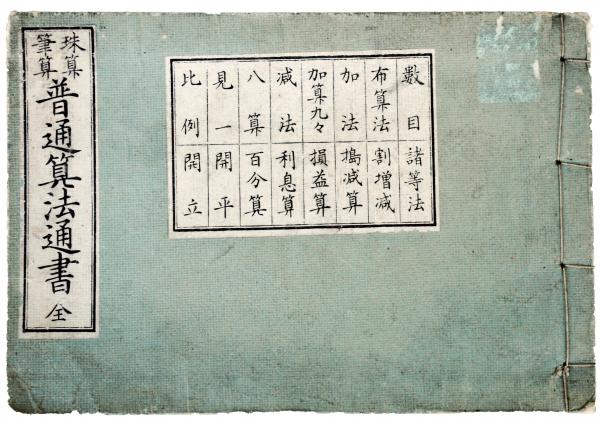 珠算
筆算
普通算法通書 全
數目 諸等法
布算法 割増减
加法 撝减算
加算九々 損益算
减法 利息算
八算 百分算
見一 開平
比例 開立